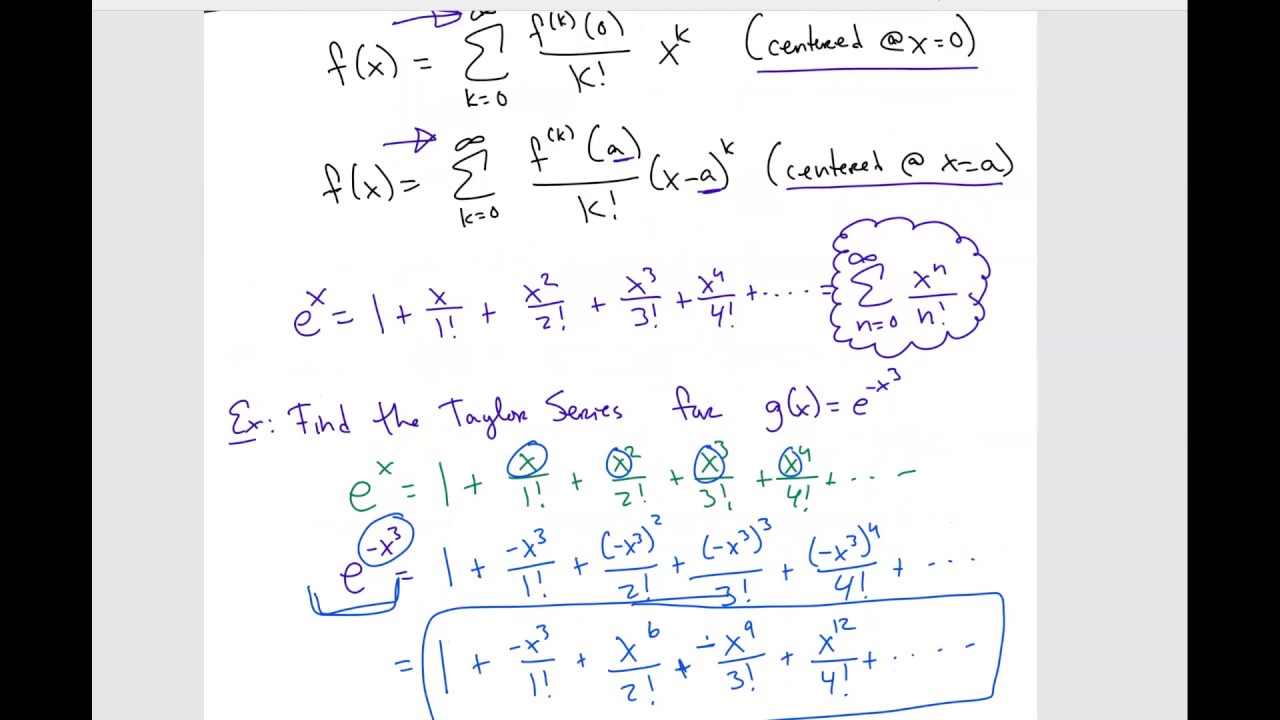 f(x) = ∞ Σ k=0 f^(k)(0)/k! x^k (centered @ x=0)
f(x) = ∞ Σ k=0 f^(k)(a)/k! (x-a)^k (centered @ x=a)
e^x = 1 + x/1! + x^2/2! + x^3/3! + x^4/4! + ····· = ∞ Σ n=0 x^n/n!
Ex: Find the Taylor Series for g(x) = e^-x^3
e^x = 1 + x/1! + x^2/2! + x^3/3! + x^4/4! + ·· –
e^-x^3 = 1 + -x^3/1! + (-x^3)^2/2! + (-x^3)^3/3! + (-x^3)^4/4! + ····
= 1 + -x^3/1! + x^6/2! + -x^9/3! + x^12/4! + ·····